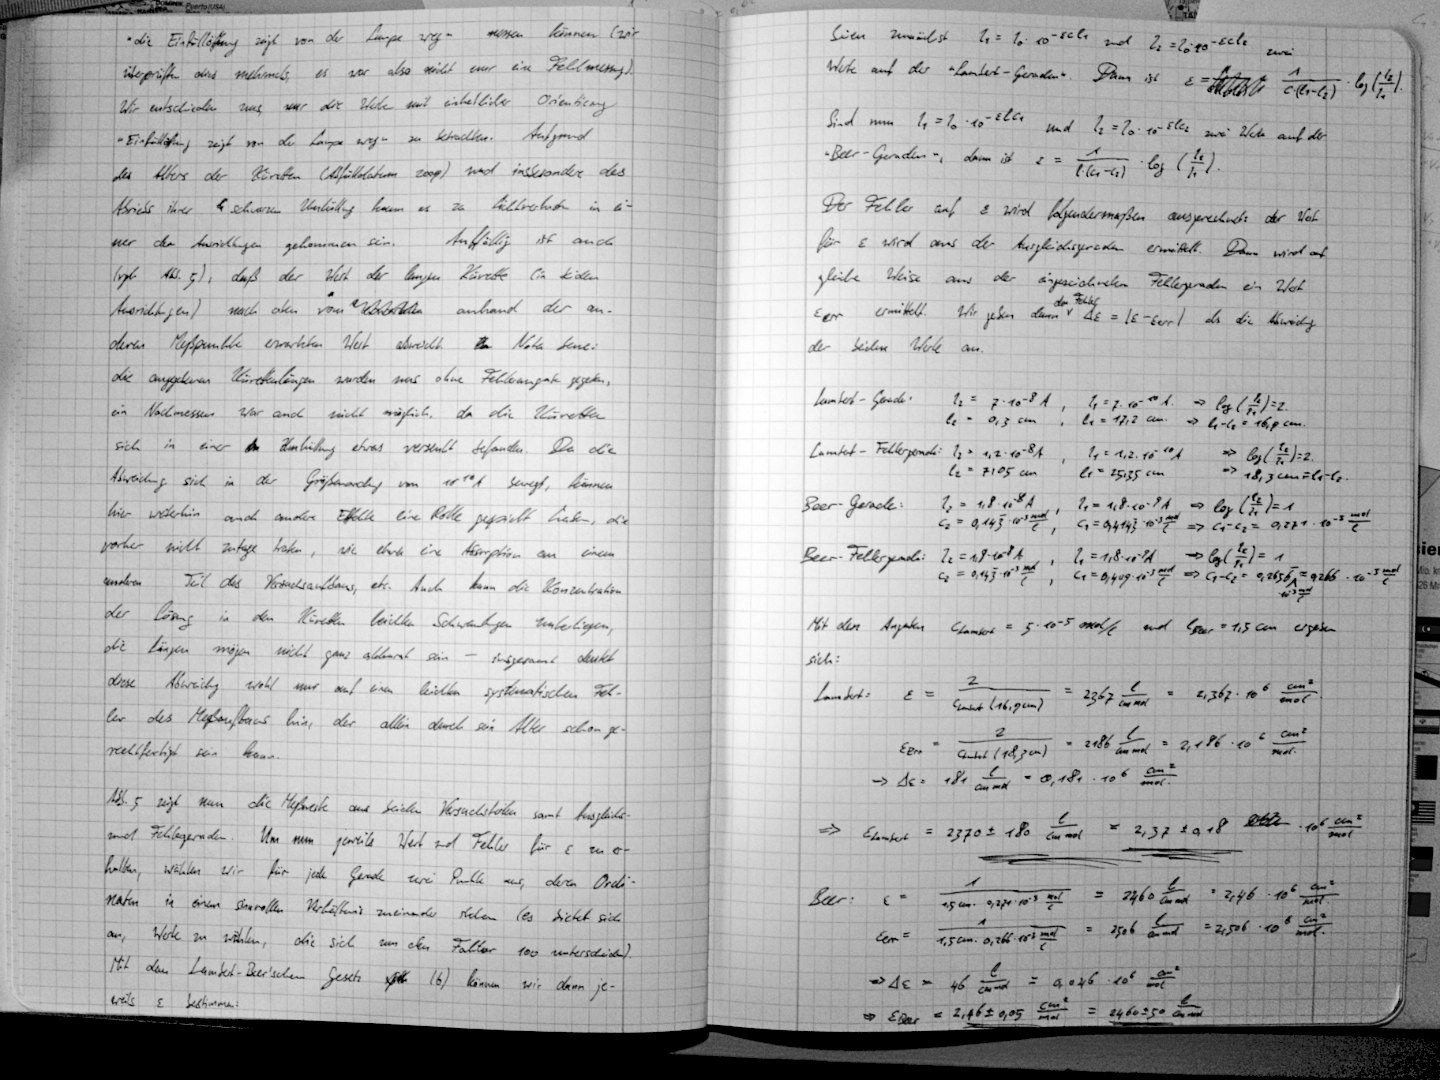 "die Einfüllöffnung zeigt von der Lampe weg" messen können (wir
überprüften dies mehrmals, es war also nicht nur eine Fehlmessung).
Wir entschieden uns, nur die Werte mit einheitlicher Orientierung
"Einfüllöffnung zeigt von der Lampe weg" zu betrachten. Aufgrund
des Alters der Küvetten (Abfülldatum 2009) und insbesondere des
Abriebs ihrer schwarzen Umhüllung kann es zu Lichtverlusten in ei-
ner der Ausrichtungen gekommen sein. Auffällig ist auch
(vgl. Abb. 5), daß der Wert der langen Küvette (in beiden
Ausrichtungen) nach oben vom anhand der an-
deren Meßpunkte erwarteten Wert abweicht. Nota bene:
die angegebenen Küvettenlängen wurden uns ohne Fehlerangabe gegeben,
ein Nachmessen war auch nicht möglich, da die Küvetten
sich in einer Umhüllung etwas versenkt befanden. Da die
Abweichung sich in der Größenordnung von 10⁻¹⁰ A bewegt, können
hier weiterhin auch andere Effekte eine Rolle gespielt haben, die
vorher nicht zutage traten, wie etwa eine Absorption an einem
anderen Teil des Versuchsaufbaus, etc. Auch kann die Konzentration
der Lösung in den Küvetten leichten Schwankungen unterliegen,
die Längen mögen nicht ganz akkurat sein – insgesamt deutet
diese Abweichung wohl nur auf einen leichten systematischen Feh-
ler des Meßaufbaus hin, der allein durch sein Alter schon ge-
rechtfertigt sein kann.
Abb. 5 zeigt nun die Meßwerte aus beiden Versuchsteilen samt Ausgleichs-
und Fehlergeraden. Um nun jeweils Wert und Fehler für ε zu er-
halten, wählen wir für jede Gerade zwei Punkte aus, deren Ordi-
naten in einem sinnvollen Verhältnis zueinander stehen (es bietet sich
an, Werte zu wählen, die sich um den Faktor 100 unterscheiden).
Mit dem Lambert-Beer'schen Gesetz (6) können wir dann je-
weils ε bestimmen:
Seien zunächst I₁ = I₀·10^(-εcl₁) und I₂ = I₀·10^(-εcl₂) zwei
Werte auf der "Lambert-Geraden". Dann ist ε = 1/(c·(l₁-l₂)) · log(I₂/I₁).
Sind nun I₁ = I₀·10^(-εlc₁) und I₂ = I₀·10^(-εlc₂) zwei Werte auf der
"Beer-Geraden", dann ist ε = 1/(l·(c₁-c₂)) · log(I₂/I₁).
Der Fehler auf ε wird folgendermaßen ausgerechnet: der Wert
für ε wird aus der Ausgleichsgeraden ermittelt. Dann wird auf
gleiche Weise aus der eingezeichneten Fehlergeraden ein Wert
ε_err ermittelt. Wir geben dann den Fehler Δε = |ε-ε_err| als die Abweichung
der beiden Werte an.
Lambert-Gerade: I₂ = 7·10⁻⁸ A, I₁ = 7·10⁻¹⁰ A. ⇒ log(I₂/I₁) = 2.
l₂ = 0,3 cm, l₁ = 17,2 cm. ⇒ l₁-l₂ = 16,9 cm.
Lambert-Fehlergerade: I₂ = 1,2·10⁻⁸ A, I₁ = 1,2·10⁻¹⁰ A ⇒ log(I₂/I₁) = 2.
l₂ = 7,05 cm l₁ = 25,35 cm ⇒ 18,3 cm = l₁-l₂.
Beer-Gerade: I₂ = 1,8·10⁻⁸ A, I₁ = 1,8·10⁻⁹ A ⇒ log(I₂/I₁) = 1
c₂ = 0,143·10⁻³ mol/l, c₁ = 0,4143·10⁻³ mol/l ⇒ c₁-c₂ = 0,271·10⁻³ mol/l
Beer-Fehlergerade: I₂ = 1,8·10⁻⁸ A, I₁ = 1,8·10⁻⁹ A ⇒ log(I₂/I₁) = 1
c₂ = 0,143·10⁻³ mol/l, c₁ = 0,409·10⁻³ mol/l ⇒ c₁-c₂ = 0,266·10⁻³ mol/l
Mit den Angaben c_Lambert = 5·10⁻⁵ mol/l und l_Beer = 1,5 cm ergeben
sich:
Lambert: ε = 2/(c_Lambert (16,9 cm)) = 2367 l/(cm mol) = 2,367·10⁶ cm²/mol.
ε_err = 2/(c_Lambert (18,3 cm)) = 2186 l/(cm mol) = 2,186·10⁶ cm²/mol.
⇒ Δε = 181 l/(cm mol) = 0,181·10⁶ cm²/mol.
⇒ ε_Lambert = 2370 ± 180 l/(cm mol) = 2,37 ± 0,18 ·10⁶ cm²/mol
Beer: ε = 1/(1,5 cm · 0,271·10⁻³ mol/l) = 2460 l/(cm mol) = 2,46·10⁶ cm²/mol.
ε_err = 1/(1,5 cm · 0,266·10⁻³ mol/l) = 2506 l/(cm mol) = 2,506·10⁶ cm²/mol.
⇒ Δε = 46 l/(cm mol) = 0,046·10⁶ cm²/mol.
⇒ ε_Beer = 2,46 ± 0,05 cm²/mol = 2460 ± 50 l/(cm mol)